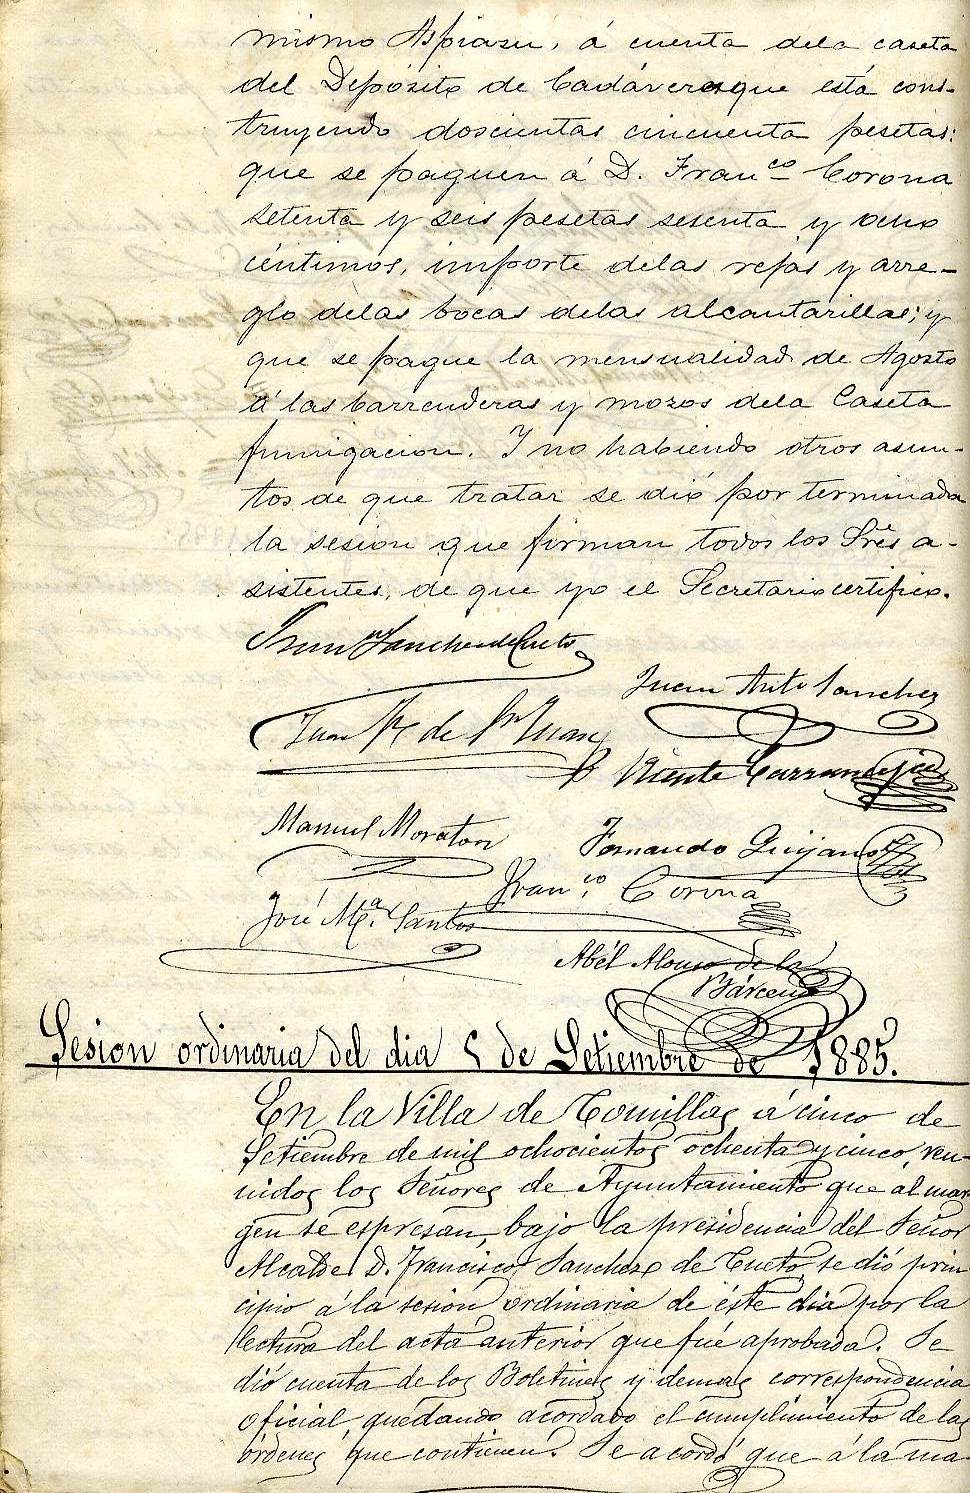 mismo Aspiazu, á cuenta dela caseta
del Depósito de Cadáveres que está cons-
truyendo doscientas cincuenta pesetas:
que se paguen á D. Franco Corona
setenta y seis pesetas sesenta y ocho
céntimos, importe delas rejas y arre-
glo delas bocas delas alcantarillas; y
que se pague la mensualidad de Agosto
á las barrenderas y mozos dela Caseta
fumigacion. Y no habiendo otros asun-
tos de que tratar se dió por terminada
la sesion que firman todos los Sres a-
sistentes, de que yo el Secretario certifico.
Sanchez de Cueto
Juan Anto Sanchez
Juan de Sn Juan
Vicente Carrancejie
Manuel Moraton
Fernando Quijano
Franco. Corona
José Ma. Santos
Abél Alonso de la
Bárcena
Sesion ordinaria del dia 5 de Setiembre de 1885.
En la Villa de Comillas á cinco de
Setiembre de mil ochocientos ochenta y cinco, reu-
nidos los Señores de Ayuntamiento que al mar-
gen se espresan, bajo la presidencia del Señor
Alcalde D. Francisco Sanchez de Cueto, se dió prin-
cipio á la sesion ordinaria de éste dia por la
lectura del acta anterior que fué aprobada. Se
dió cuenta de los Boletines y demas correspondencia
oficial, quedando acordado el cumplimiento de las
órdenes que contienen. Se acordó que á la ma-